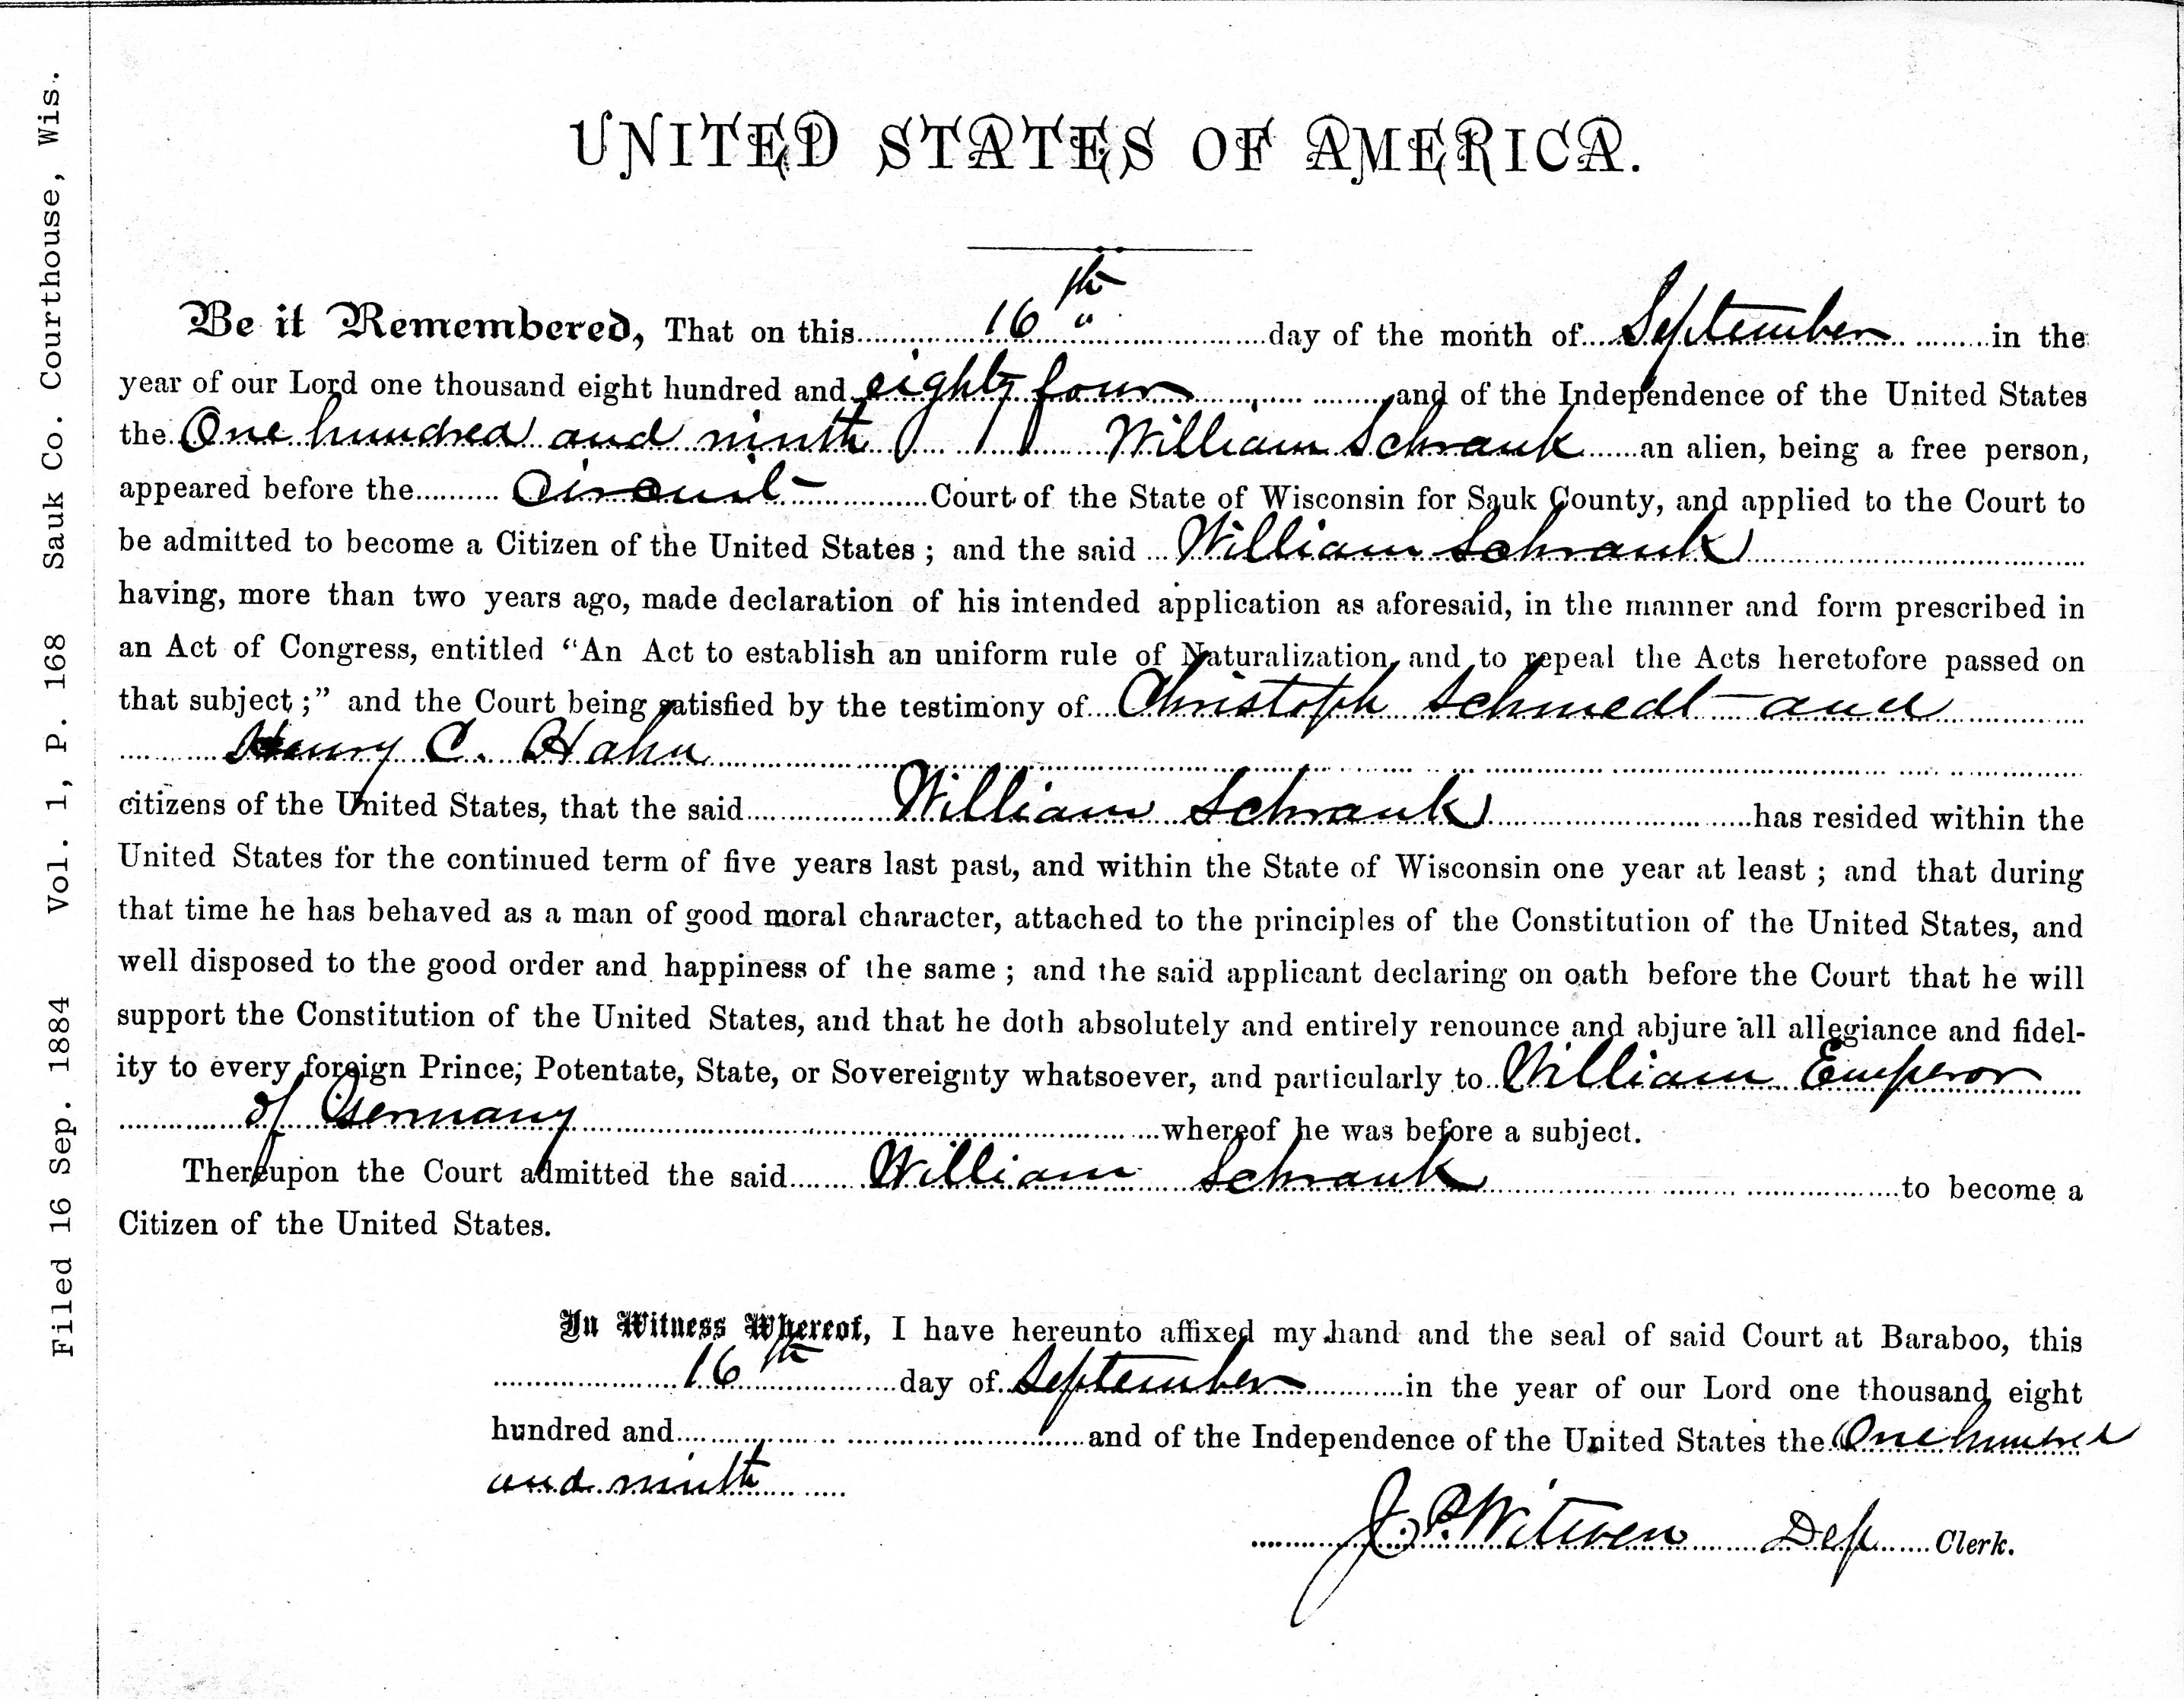 UNITED STATES OF AMERICA.
Be it Remembered, That on this 16th day of the month of September in the
year of our Lord one thousand eight hundred and eighty four and of the Independence of the United States
the One hundred and ninth William Schrank an alien, being a free person,
appeared before the Circuit Court of the State of Wisconsin for Sauk County, and applied to the Court to
be admitted to become a Citizen of the United States ; and the said William Schrank
having, more than two years ago, made declaration of his intended application as aforesaid, in the manner and form prescribed in
an Act of Congress, entitled “An Act to establish an uniform rule of Naturalization, and to repeal the Acts heretofore passed on
that subject ;” and the Court being satisfied by the testimony of Christoph Schmedt and
Henry C. Hahn
citizens of the United States, that the said William Schrank has resided within the
United States for the continued term of five years last past, and within the State of Wisconsin one year at least ; and that during
that time he has behaved as a man of good moral character, attached to the principles of the Constitution of the United States, and
well disposed to the good order and happiness of the same ; and the said applicant declaring on oath before the Court that he will
support the Constitution of the United States, and that he doth absolutely and entirely renounce and abjure all allegiance and fidel-
ity to every foreign Prince, Potentate, State, or Sovereignty whatsoever, and particularly to William Emperor
of Germany whereof he was before a subject.
Thereupon the Court admitted the said William Schrank to become a
Citizen of the United States.
In Witness Whereof, I have hereunto affixed my hand and the seal of said Court at Baraboo, this
16th day of September in the year of our Lord one thousand eight
hundred and and of the Independence of the United States the One hundred
and ninth
J. P. Witwen Dep Clerk.
Filed 16 Sep. 1884 Vol. 1, P. 168 Sauk Co. Courthouse, Wis.